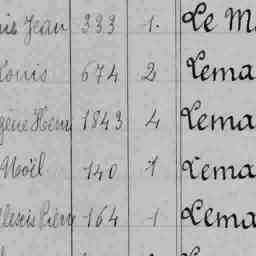 Jean 333 1. Le M
Louis 674 2 Lema
Henri 1843 4 Lema
Noël 140 1 Lema
Alexis 164 1 Lema